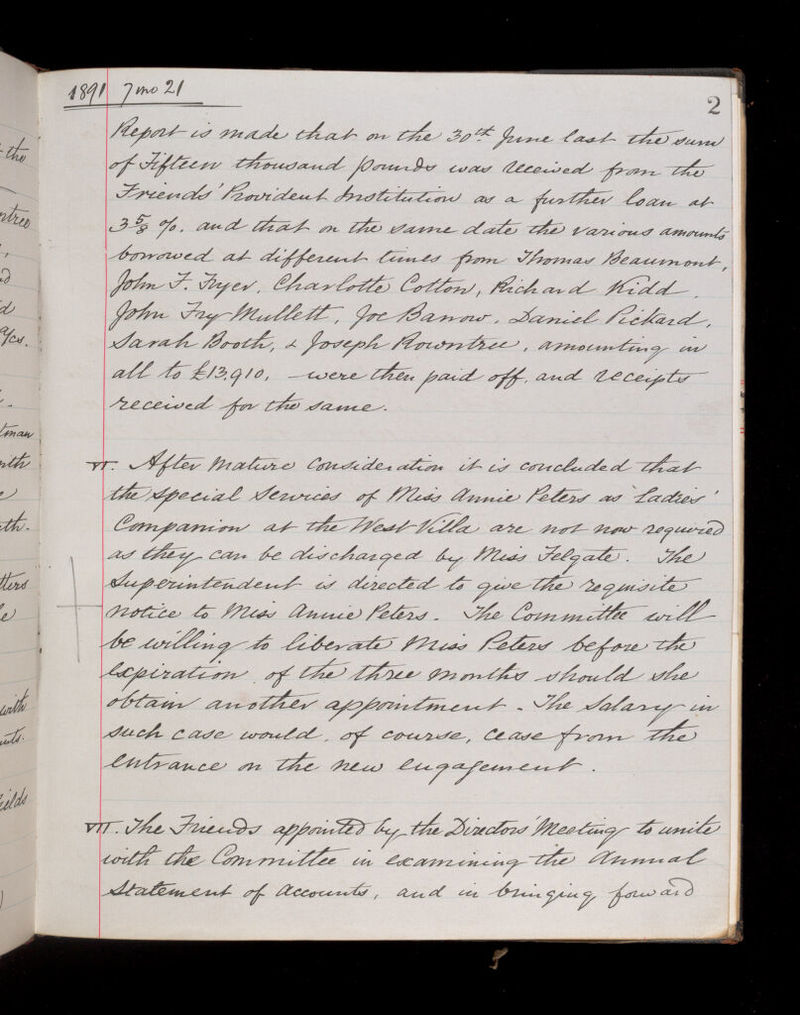 1891 7mo 21
2
Report is made that on the 30th June last the sum
of Fifteen thousand pounds was received from the
Friends' Provident Institution as a further loan at
3 5/8 %. and that on the same date the various amounts
borrowed at different times from Thomas Beaumont,
John F. Fryer, Charlotte Cotton, Richard Kidd,
John Fry Mullett, Joe Barrow, Daniel Pickard,
Sarah Booth, & Joseph Rowntree, amounting in
all to £13,910, – were then paid off, and receipts
received for the same.
VI. After mature consideration it is concluded that
the special services of Miss Annie Peters as 'Ladies'
Companion at the West Villa are not now required
as they can be discharged by Miss Felgate. The
Superintendent is directed to give the requisite
notice to Miss Annie Peters. The Committee will
be willing to liberate Miss Peters before the
expiration of the three months should she
obtain another appointment. The salary in
such case would, of course, cease from the
entrance on the new engagement.
VII. The Friends appointed by the Directors' Meeting to unite
with the Committee in examining the Annual
Statement of Accounts, and in bringing forward